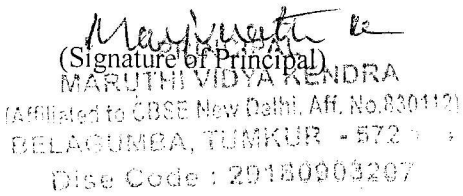 Manjunath
(Signature of Principal)
MARUTHI VIDYA KENDRA
(Affiliated to CBSE New Delhi, Aff. No.830112)
BELAGUMBA, TUMKUR - 572
Dise Code : 29180903207